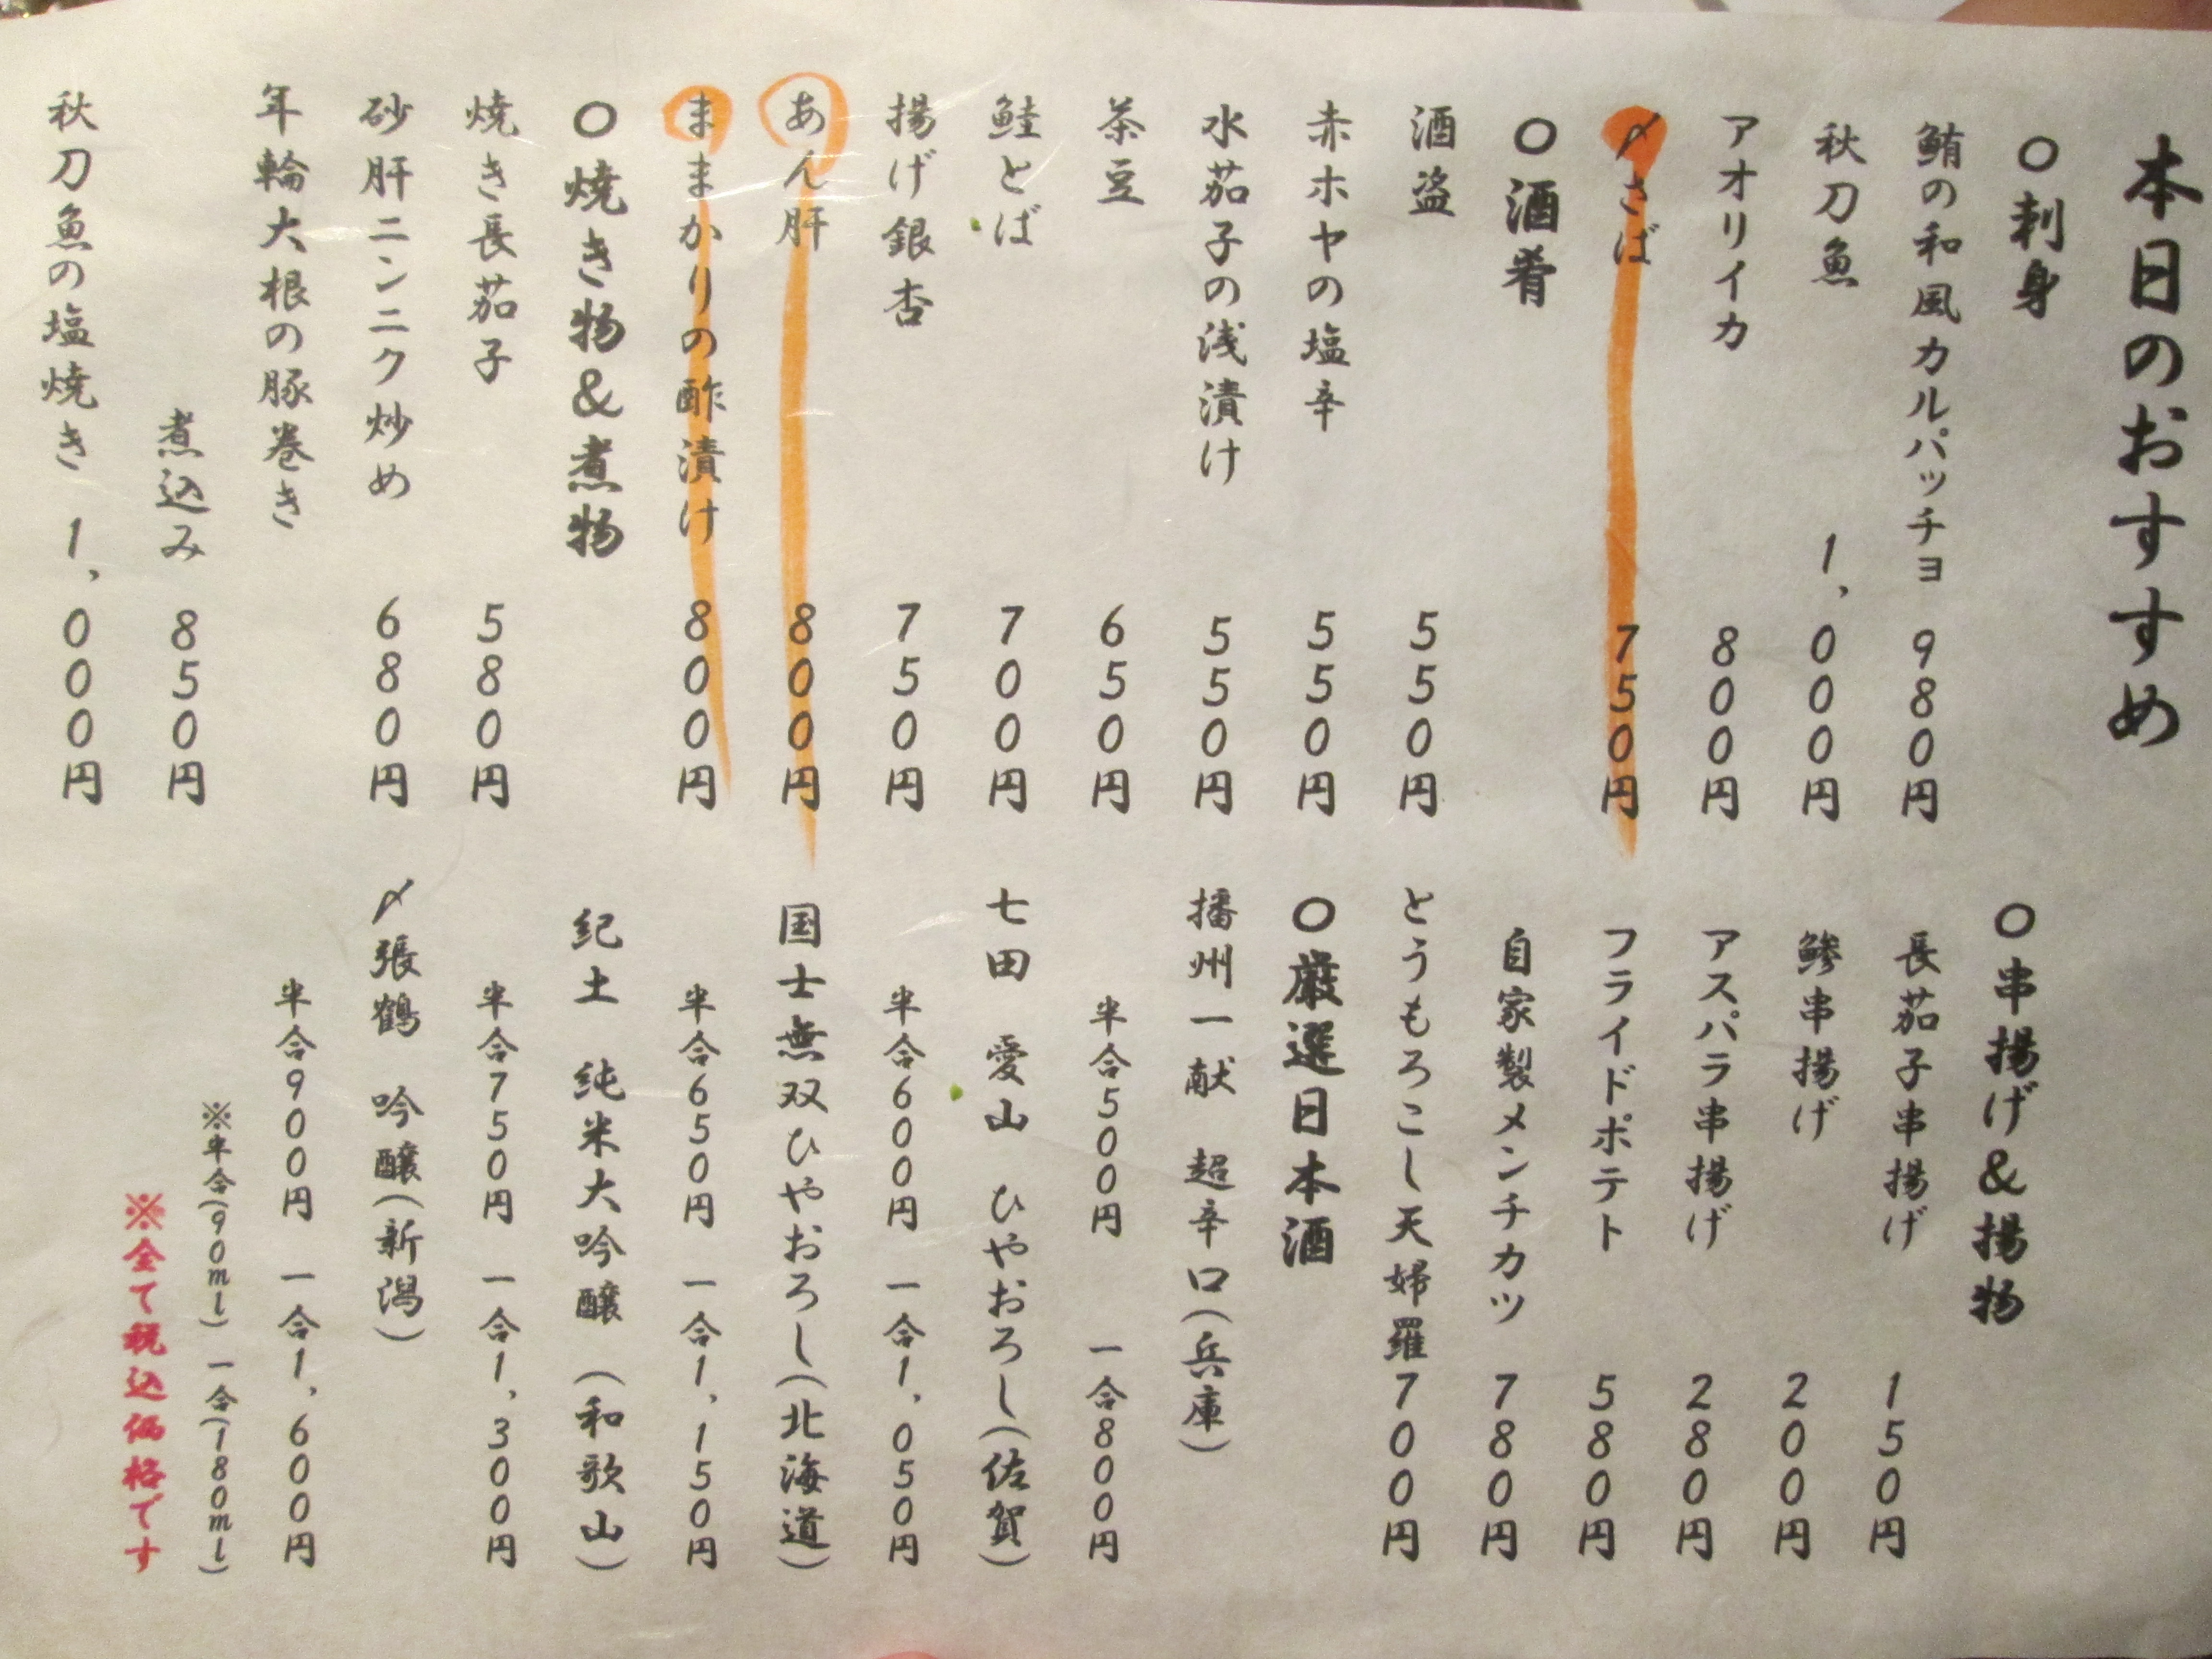 本日のおすすめ
○刺身
鮪の和風カルパッチョ 980円
秋刀魚 1,000円
アオリイカ 800円
〆さば 750円
○酒肴
酒盗 550円
赤ホヤの塩辛 550円
水茄子の浅漬け 550円
茶豆 650円
鮭とば 700円
揚げ銀杏 750円
あん肝 800円
ままかりの酢漬け 800円
○焼き物&煮物
焼き長茄子 580円
砂肝ニンニク炒め 680円
年輪大根の豚巻き
煮込み 850円
秋刀魚の塩焼き 1,000円
○串揚げ&揚物
長茄子串揚げ 150円
鯵串揚げ 200円
アスパラ串揚げ 280円
フライドポテト 580円
自家製メンチカツ 780円
とうもろこし天婦羅 700円
○厳選日本酒
播州一献 超辛口(兵庫)
半合500円 一合800円
七田 愛山 ひやおろし(佐賀)
半合600円 一合1,050円
国士無双ひやおろし(北海道)
半合650円 一合1,150円
紀土 純米大吟醸 (和歌山)
半合750円 一合1,300円
〆張鶴 吟醸(新潟)
半合900円 一合1,600円
※半合(90ml) 一合(180ml)
※全て税込価格です